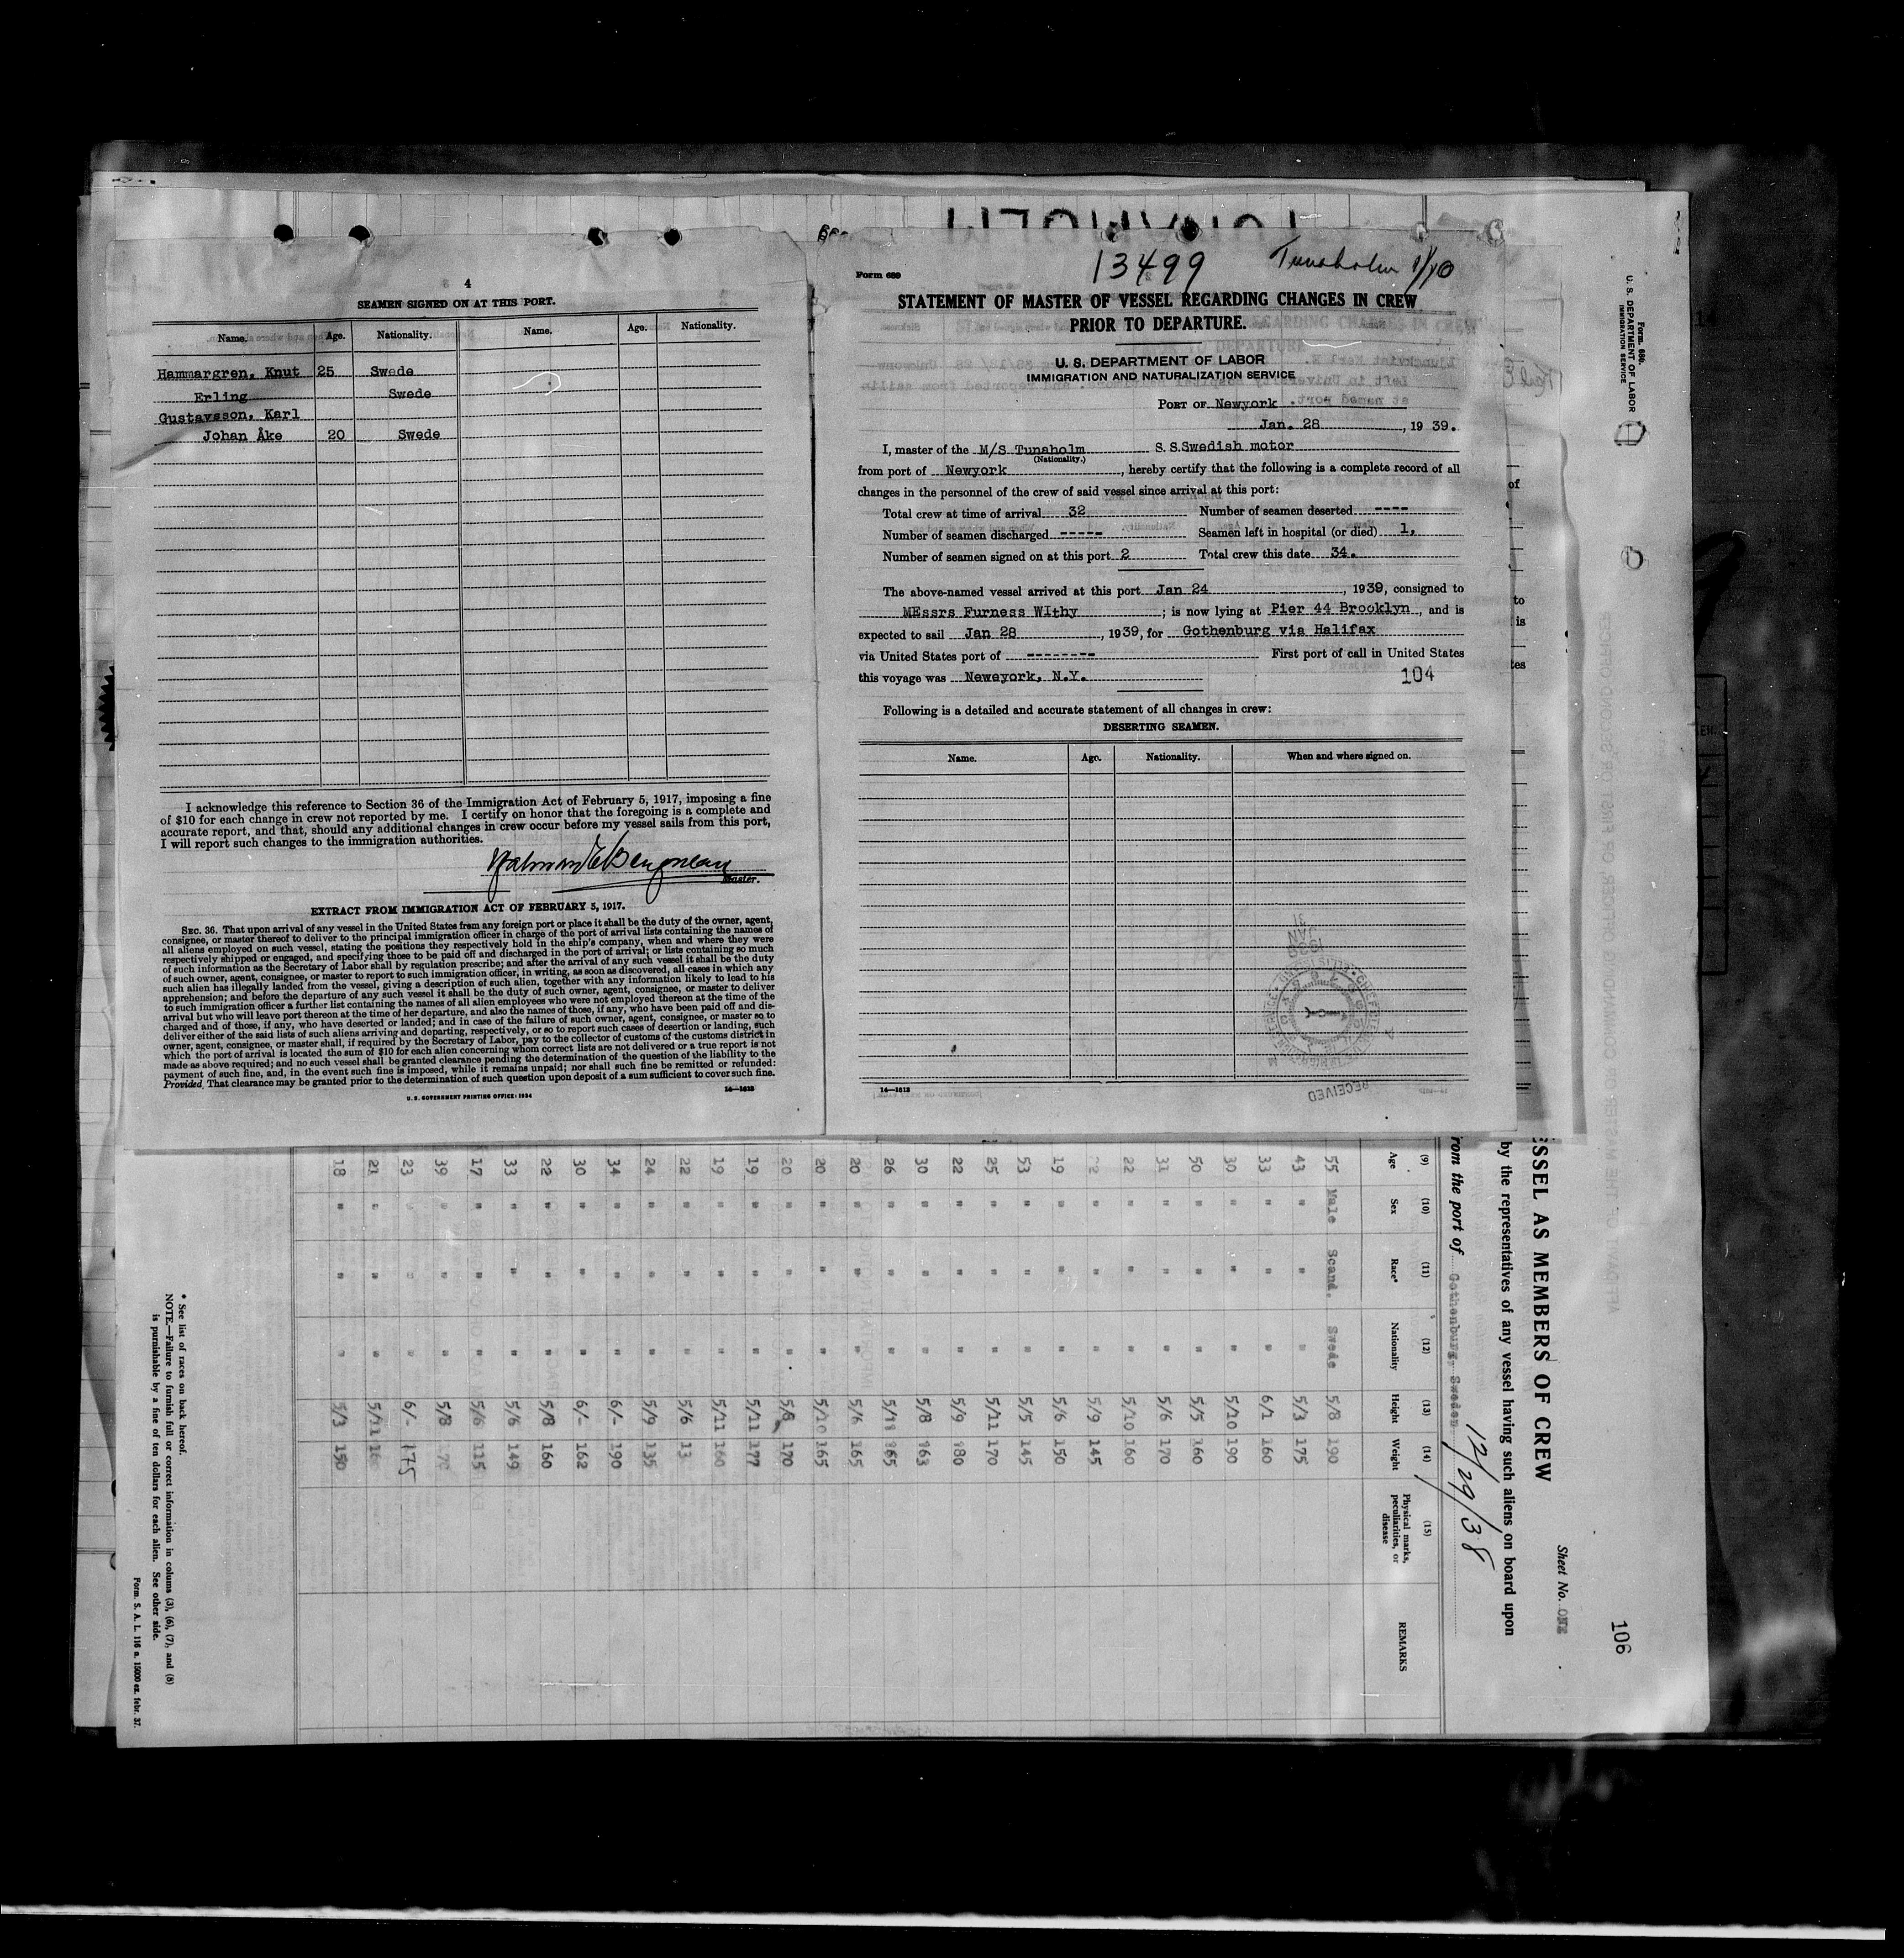 4
SEAMEN SIGNED ON AT THIS PORT.
Name. Age. Nationality. Name. Age. Nationality.
Hammargren, Knut 25 Swede
Erling Swede
Gustavsson, Karl
Johan Åke 20 Swede
I acknowledge this reference to Section 36 of the Immigration Act of February 5, 1917, imposing a fine
of $10 for each change in crew not reported by me. I certify on honor that the foregoing is a complete and
accurate report, and that, should any additional changes in crew occur before my vessel sails from this port,
I will report such changes to the immigration authorities.
Master.
EXTRACT FROM IMMIGRATION ACT OF FEBRUARY 5, 1917.
SEC. 36. That upon arrival of any vessel in the United States from any foreign port or place it shall be the duty of the owner, agent,
consignee, or master thereof to deliver to the principal immigration officer in charge of the port of arrival lists containing the names of
all aliens employed on such vessel, stating the positions they respectively hold in the ship's company, when and where they were
respectively shipped or engaged, and specifying those to be paid off and discharged in the port of arrival; or lists containing so much
of such information as the Secretary of Labor shall by regulation prescribe; and after the arrival of any such vessel it shall be the duty
of such owner, agent, consignee, or master to report to such immigration officer, in writing, as soon as discovered, all cases in which any
such alien has illegally landed from the vessel, giving a description of such alien, together with any information likely to lead to his
apprehension; and before the departure of any such vessel it shall be the duty of such owner, agent, consignee, or master to deliver
to such immigration officer a further list containing the names of all alien employees who were not employed thereon at the time of the
arrival but who will leave port thereon at the time of her departure, and also the names of those, if any, who have been paid off and dis-
charged and of those, if any, who have deserted or landed; and in case of the failure of such owner, agent, consignee, or master so to
deliver either of the said lists of such aliens arriving and departing, respectively, or so to report such cases of desertion or landing, such
owner, agent, consignee, or master shall, if required by the Secretary of Labor, pay to the collector of customs of the customs district in
which the port of arrival is located the sum of $10 for each alien concerning whom correct lists are not delivered or a true report is not
made as above required; and no such vessel shall be granted clearance pending the determination of the question of the liability to the
payment of such fine, and, in the event such fine is imposed, while it remains unpaid; nor shall such fine be remitted or refunded:
Provided, That clearance may be granted prior to the determination of such question upon deposit of a sum sufficient to cover such fine.
U. S. GOVERNMENT PRINTING OFFICE: 1934 14—1613
Form 689
13499 Tunaholm
STATEMENT OF MASTER OF VESSEL REGARDING CHANGES IN CREW
PRIOR TO DEPARTURE.
U. S. DEPARTMENT OF LABOR
IMMIGRATION AND NATURALIZATION SERVICE
PORT OF Newyork
Jan. 28, 1939.
I, master of the M/S Tunaholm S. S. Swedish motor
(Nationality.)
from port of Newyork, hereby certify that the following is a complete record of all
changes in the personnel of the crew of said vessel since arrival at this port:
Total crew at time of arrival 32 Number of seamen deserted ----
Number of seamen discharged ----- Seamen left in hospital (or died) 1,
Number of seamen signed on at this port 2 Total crew this date 34.
The above-named vessel arrived at this port Jan 24, 1939, consigned to
MEssrs Furness WIthy; is now lying at Pier 44 Brooklyn, and is
expected to sail Jan 28, 1939, for Gothenburg via Halifax
via United States port of -------- First port of call in United States
this voyage was Neweyork, N.Y. 104
Following is a detailed and accurate statement of all changes in crew:
DESERTING SEAMEN.
Name. Age. Nationality. When and where signed on.
1939
JAN
31
RECEIVED
14—1613
Form 680.
U. S. DEPARTMENT OF LABOR
IMMIGRATION SERVICE
106
Sheet No. ONE
SSEL AS MEMBERS OF CREW
by the representatives of any vessel having such aliens on board upon
rom the port of Gothenburg, Sweden 12/29/38
(9) (10) (11) (12) (13) (14) (15)
Age Sex Race* Nationality Height Weight Physical marks, peculiarities, or disease REMARKS
55 Male Scand. Swede 5/8 190
43 " " " 5/3 175
33 " " " 6/1 160
30 " " " 5/10 190
50 " " " 5/5 160
31 " " " 5/6 170
22 " " " 5/10 160
" " " 5/9 145
19 " " " 5/6 150
53 " " " 5/5 145
25 " " " 5/11 170
22 " " " 5/9 180
30 " " " 5/8 163
26 " " " 5/11 165
20 " " " 5/6 165
20 " " " 5/10 165
20 " " " 5/8 170
19 " " " 5/11 177
19 " " " 5/11 160
22 " " " 5/6
24 " " " 5/9 135
34 " " " 6/- 190
30 " " " 6/- 162
22 " " " 5/8 160
33 " " " 5/6 149
17 " " " 5/6 115
39 " " " 5/8
23 " " " 6/- 175
21 " " " 5/11
18 " " " 5/3 150
* See list of races on back hereof.
NOTE.—Failure to furnish full or correct information in colums (3), (6), (7), and (8)
is punishable by a fine of ten dollars for each alien. See other side.
Form. S. A. L. 116 a. 15000 ex. febr. 37.